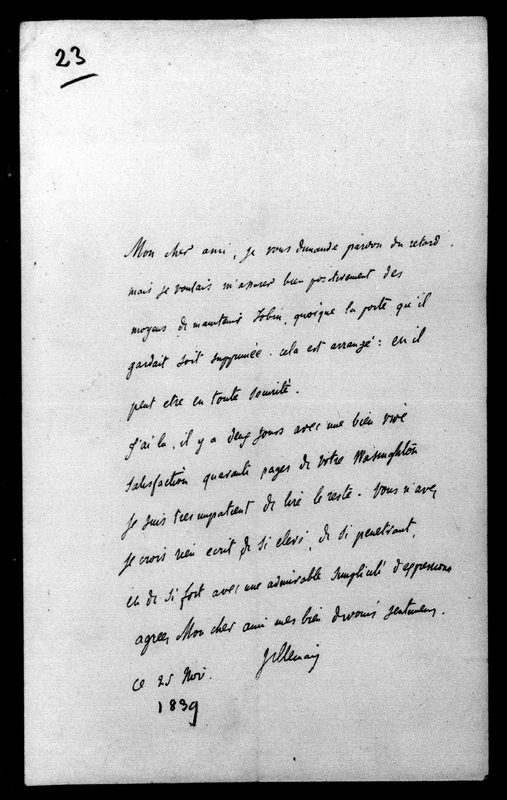 23
Mon cher ami, je vous demande pardon du retard.
mais je voulais m'assurer bien positivement des
moyens de maintenir Tobin, quoique la porte qu'il
gardait soit supprimée. cela est arrangé : et il
peut etre en toute sécurité.
J'ai lu, il y a deux jours avec une bien vive
satisfaction quarante pages de votre Wasinghton
Je suis tres impatient de lire le reste. Vous n'avez
je crois rien ecrit de si elevé, de si penetrant,
et de si fort avec une admirable simplicité d'expressions
agreez Mon cher ami mes bien devoués sentimens.
Villemain
ce 25 Nov.
1839